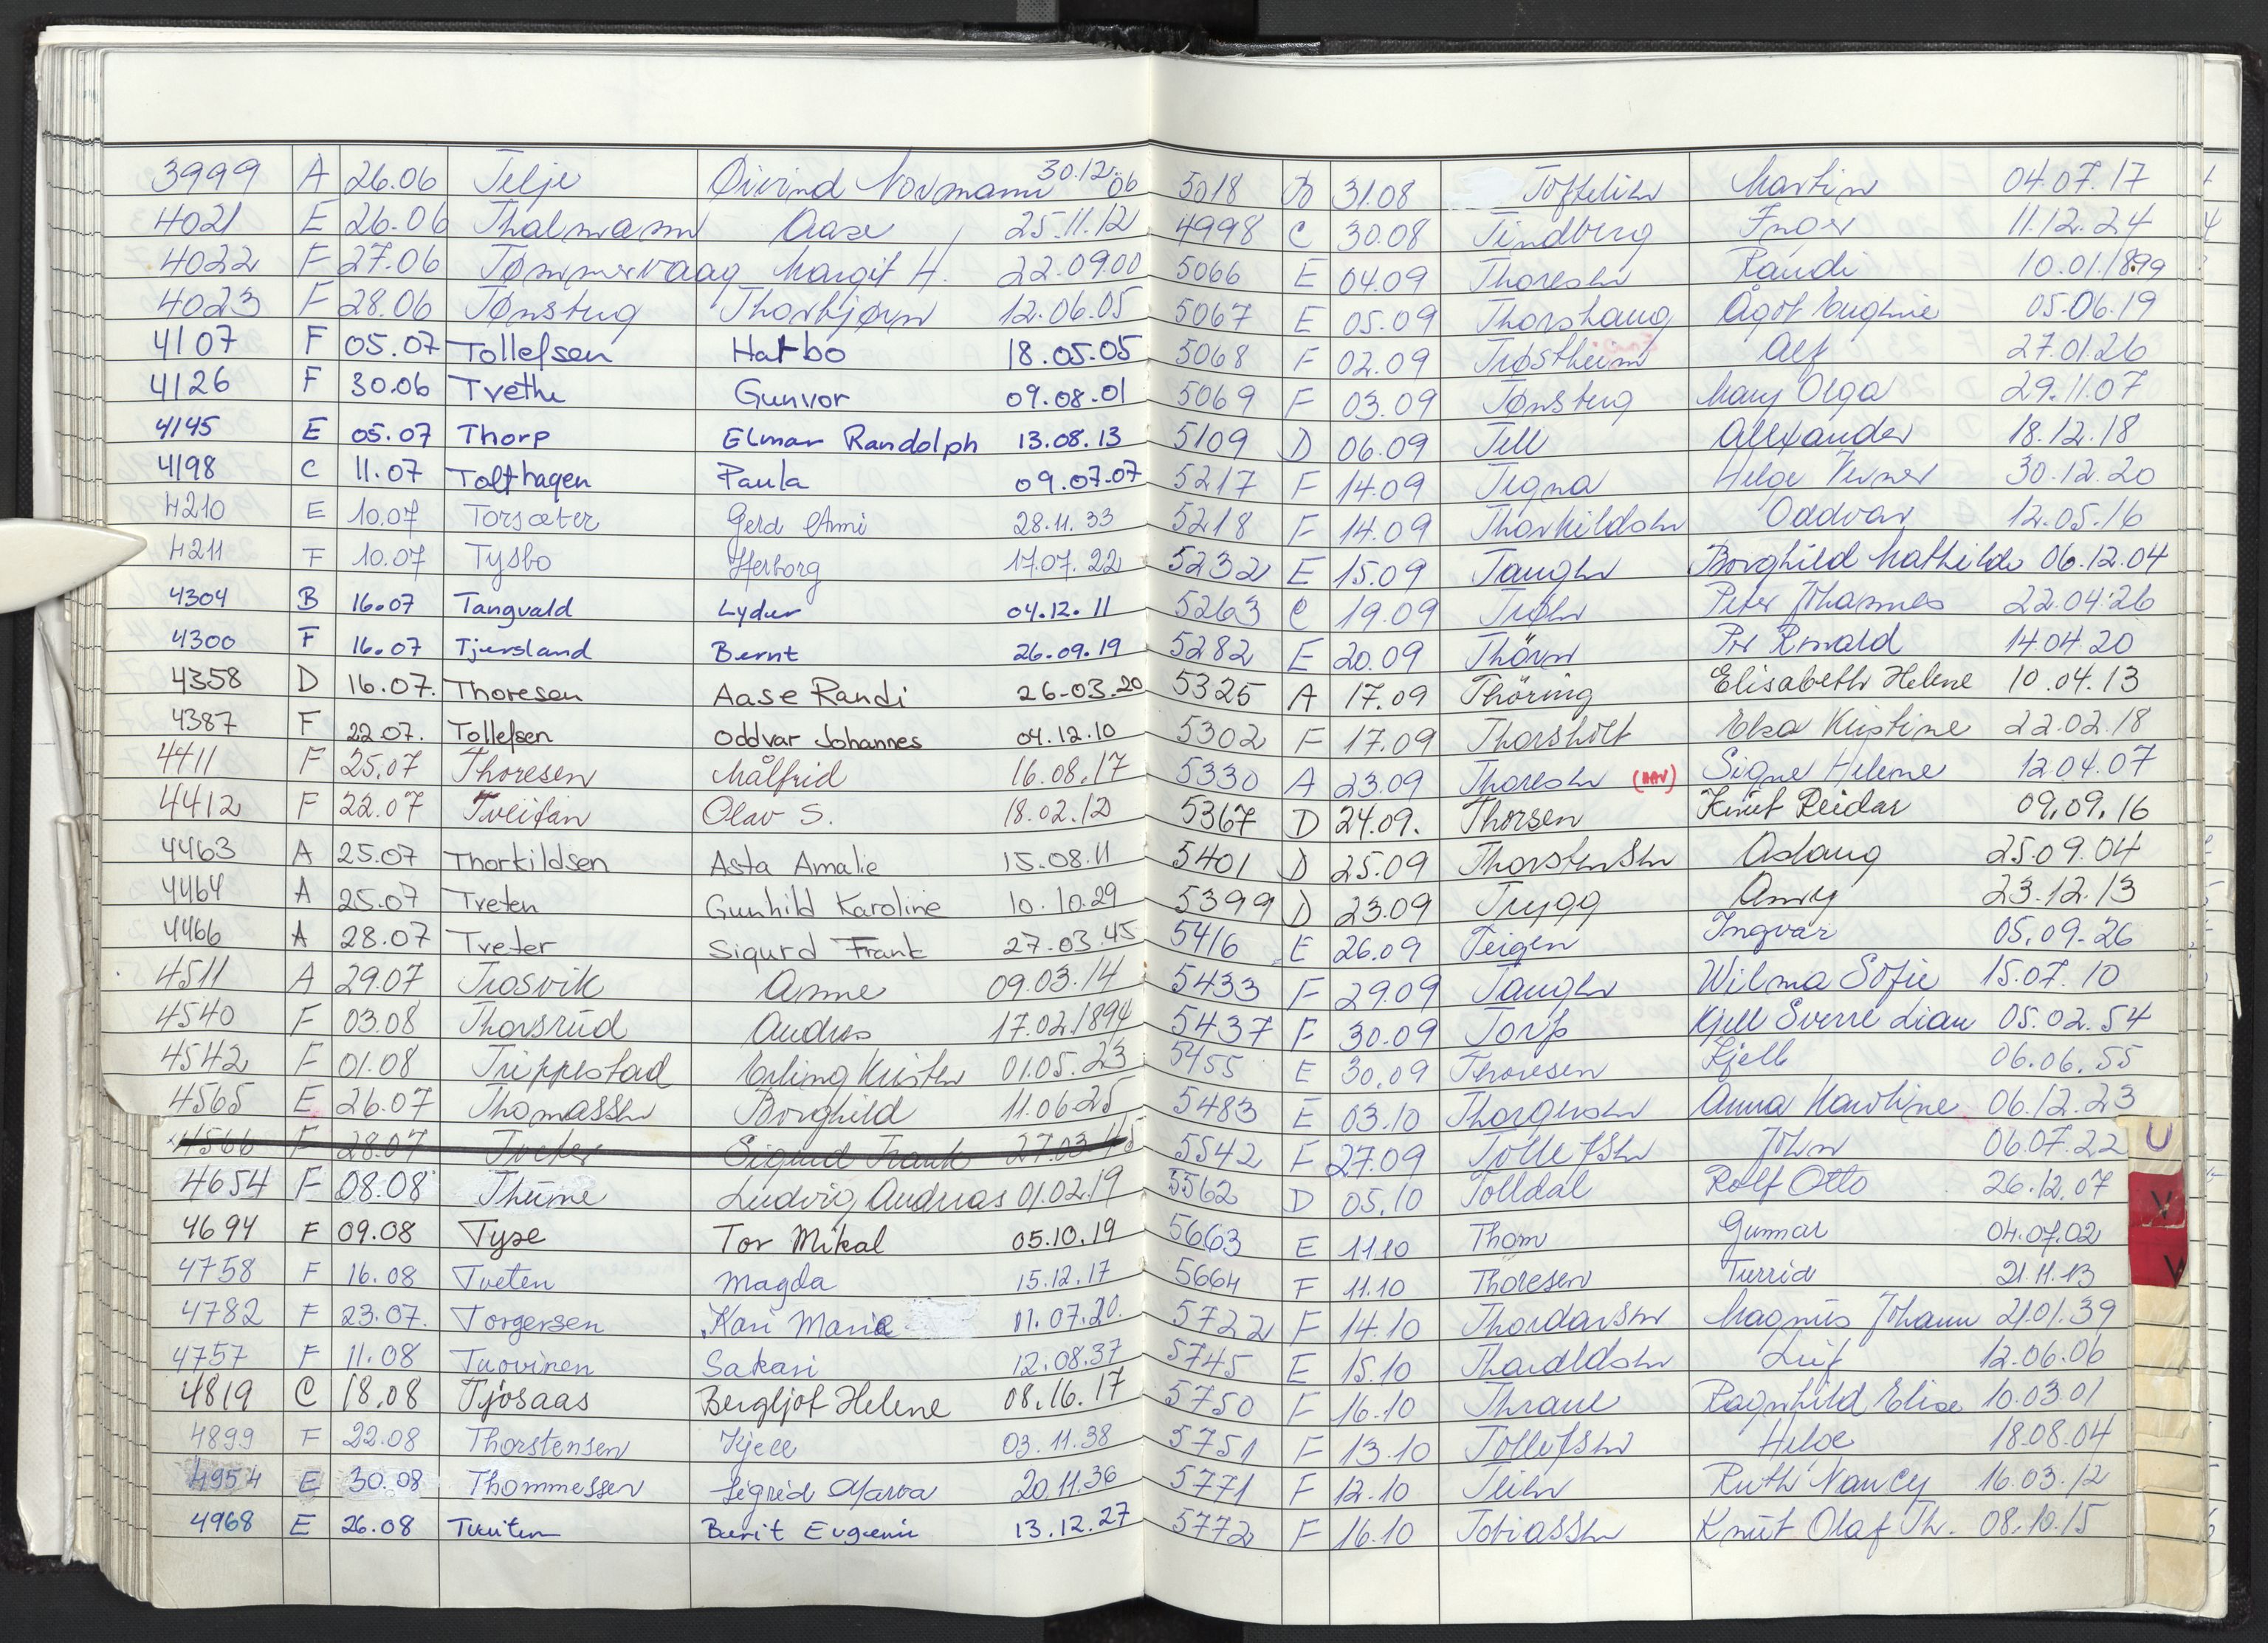 3999 A 26.06 Telje Øivind Normann 30.12.06
4021 E 26.06 Thalmann Aase 25.11.12
4022 F 27.06 Tømmervaag Margit H. 22.09.00
4023 F 28.06 Tønsberg Thorbjørn 12.06.05
4107 F 05.07 Tollefsen Harbo 18.05.05
4126 F 30.06 Tvethe Gunvor 09.08.01
4145 E 05.07 Thorp Elmar Randolph 13.08.13
4198 C 11.07 Tofthagen Paula 09.07.07
4210 E 10.07 Torsæter Gerd Anni 28.11.33
4211 F 10.07 Tysbo Herborg 17.07.22
4304 B 16.07 Tangvald Lyder 04.12.11
4300 F 16.07 Tjersland Bernt 26.09.19
4358 D 16.07. Thoresen Aase Randi 26.03.20
4387 F 22.07. Tollefsen Oddvar Johannes 04.12.10
4411 F 25.07 Thoresen Målfrid 16.08.17
4412 F 22.07 Tveitan Olav S. 18.02.12
4463 A 25.07 Thorkildsen Asta Amalie 15.08.11
4464 A 25.07 Treten Gunhild Karoline 10.10.29
4466 A 28.07 Treter Sigurd Frank 27.03.45
4511 A 29.07 Trosvik Anne 09.03.14
4540 F 03.08 Thorsrud Andreas 17.02.1894
4542 F 01.08 Trippestad Erling Kristen 01.05.23
4565 E 26.07 Thomassen Borghild 11.06.25
4566 F 28.07 Treter Sigurd Frank 27.03.45
4654 F 08.08 Thune Ludvig Andreas 01.02.19
4694 F 09.08 Tyse Tor Mikal 05.10.19
4758 F 16.08 Tveten Magda 15.12.17
4782 F 23.07. Torgersen Kari Marie 01.07.20.
4757 F 11.08 Tuovinen Sakari 12.08.37
4819 C 18.08 Tjosaas Bergljot Helene 08.16.17
4899 F 22.08 Thorstensen Kjell 03.11.38
4954 E 30.08 Thommessen Sigrid Marva 20.11.36
4968 E 26.08 Tuiten Berit Eugenie 13.12.27
5018 D 31.08 Toftelien Martin 04.07.17
4998 C 30.08 Tindberg Inger 11.12.24
5066 E 04.09 Thoresen Randi 10.01.1899
5067 E 05.09 Thorshaug Ågot 05.06.19
5068 F 02.09 Trøstheim Alf 27.01.26
5069 F 03.09 Tønsberg Mary Olga 29.11.07
5109 D 06.09 Tell Alexander 18.12.18
5217 F 14.09 Tegna Helge Verner 30.12.20
5218 F 14.09 Thorkildsen Oddvar 12.05.16
5232 E 15.09 Tangen Borghild Mathilde 06.12.04
5263 C 19.09 Trøen Peter Johannes 22.04.26
5282 E 20.09 Thörn Per Ronald 14.04.20
5325 A 17.09 Thöring Elisabeth Helene 10.04.13
5302 F 17.09 Thorsholt Elsa Kristine 22.02.18
5330 A 23.09 Thoresen (HAV) Signe Helene 12.04.07
5367 D 24.09. Thorsen Knut Reidar 09.09.16
5401 D 25.09 Thorstensen Aslaug 25.09.04
5399 D 23.09 Trygg Anny 23.12.13
5416 E 26.09 Teigen Ingvar 05.09.26
5433 F 29.09 Tangen Wilma Sofie 15.07.10
5437 F 30.09 Torp Kjell Sverre Lian 05.02.54
5455 E 30.09 Thoresen Kjell 06.06.55
5483 E 03.10 Thorgersen Anna Karoline 06.12.23
5542 F 27.09 Tollefsen John 06.07.22
5562 D 05.10 Tolldal Rolf Otto 26.12.07
5663 E 11.10 Thom Gunnar 04.07.02
5664 F 11.10 Thoresen Turrid 21.11.13
5722 F 14.10 Thordarsen Magnus Johann 21.01.39
5745 E 15.10 Tharaldsen Leif 12.06.06
5750 F 16.10 Thrane Ragnhild Elise 10.03.01
5751 F 13.10 Tollefsen Helge 18.08.04
5771 F 12.10 Teien Ruth Nancy 16.03.12
5772 F 16.10 Tobiassen Knut Olaf Th. 08.10.15
U
V
V